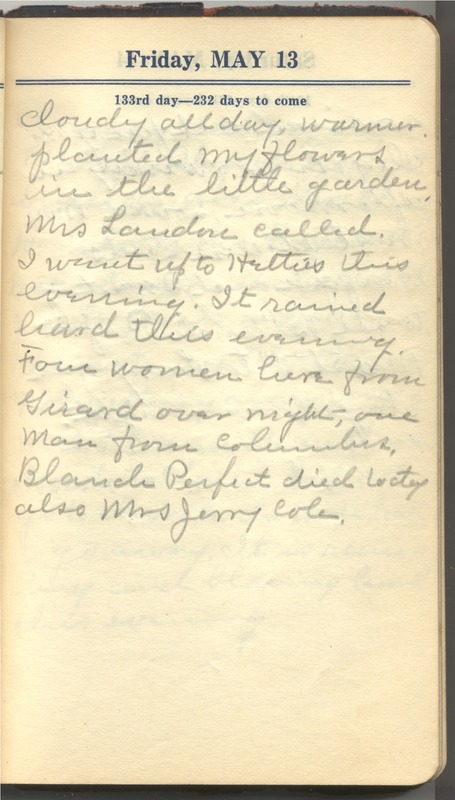 Friday, MAY 13
133rd day—232 days to come
Cloudy all day, warmer.
planted my flowers
in the little garden.
Mrs Landon called.
I went up to Hetties this
evening. It rained
hard this evening.
Four women here from
Girard over night, one
man from Columbus.
Blanch Perfect died today
also Mrs Jerry Cole.